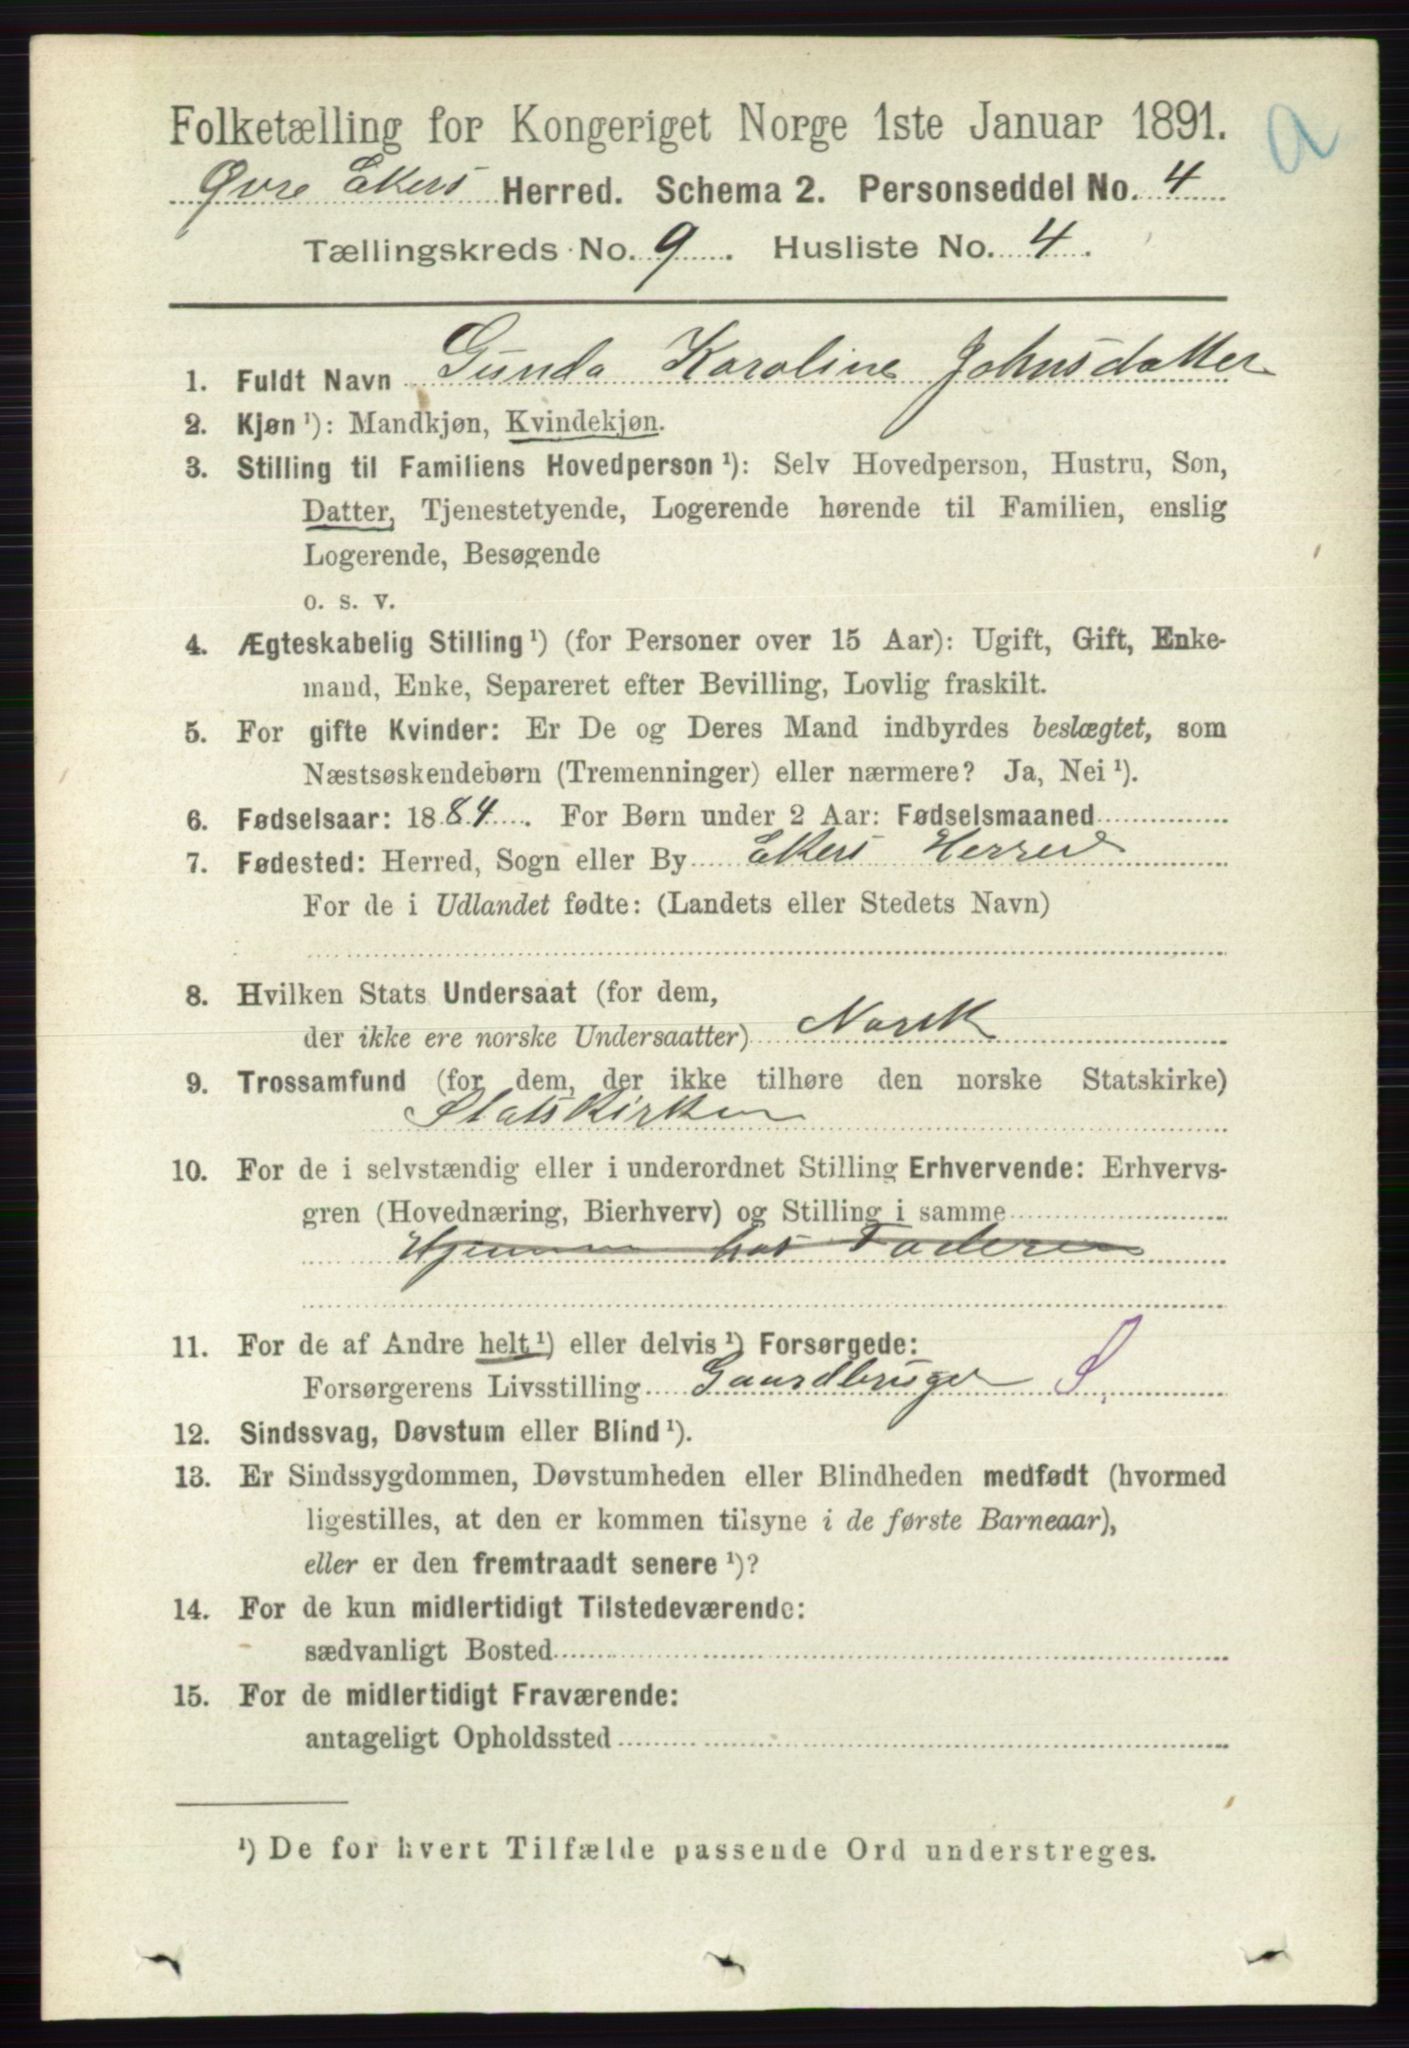 Folketælling for Kongeriget Norge 1ste Januar 1891.
a
Øvre Ekers Herred. Schema 2. Personseddel No. 4
Tællingskreds No. 9. Husliste No. 4.
1. Fuldt Navn Gunda Karoline Johnsdatter
2. Kjøn ¹): Mandkjøn, Kvindekjøn.
3. Stilling til Familiens Hovedperson ¹): Selv Hovedperson, Hustru, Søn,
Datter, Tjenestetyende, Logerende hørende til Familien, enslig
Logerende, Besøgende
o. s. v.
4. Ægteskabelig Stilling ¹) (for Personer over 15 Aar): Ugift, Gift, Enke-
mand, Enke, Separeret efter Bevilling, Lovlig fraskilt.
5. For gifte Kvinder: Er De og Deres Mand indbyrdes beslægtet, som
Næstsøskendebørn (Tremenninger) eller nærmere? Ja, Nei ¹).
6. Fødselsaar: 1884. For Børn under 2 Aar: Fødselsmaaned
7. Fødested: Herred, Sogn eller By Ekers Herred
For de i Udlandet fødte: (Landets eller Stedets Navn)
8. Hvilken Stats Undersaat (for dem,
der ikke ere norske Undersaatter) Norsk
9. Trossamfund (for dem, der ikke tilhøre den norske Statskirke)
Statskirken
10. For de i selvstændig eller i underordnet Stilling Erhvervende: Erhvervs-
gren (Hovednæring, Bierhverv) og Stilling i samme
Hjemme hos Faderen
11. For de af Andre helt ¹) eller delvis ¹) Forsørgede:
Forsørgerens Livsstilling Gaardbruger S.
12. Sindssvag, Døvstum eller Blind ¹).
13. Er Sindssygdommen, Døvstumheden eller Blindheden medfødt (hvormed
ligestilles, at den er kommen tilsyne i de første Barneaar),
eller er den fremtraadt senere ¹)?
14. For de kun midlertidigt Tilstedeværende:
sædvanligt Bosted
15. For de midlertidigt Fraværende:
antageligt Opholdssted
¹) De for hvert Tilfælde passende Ord understreges.